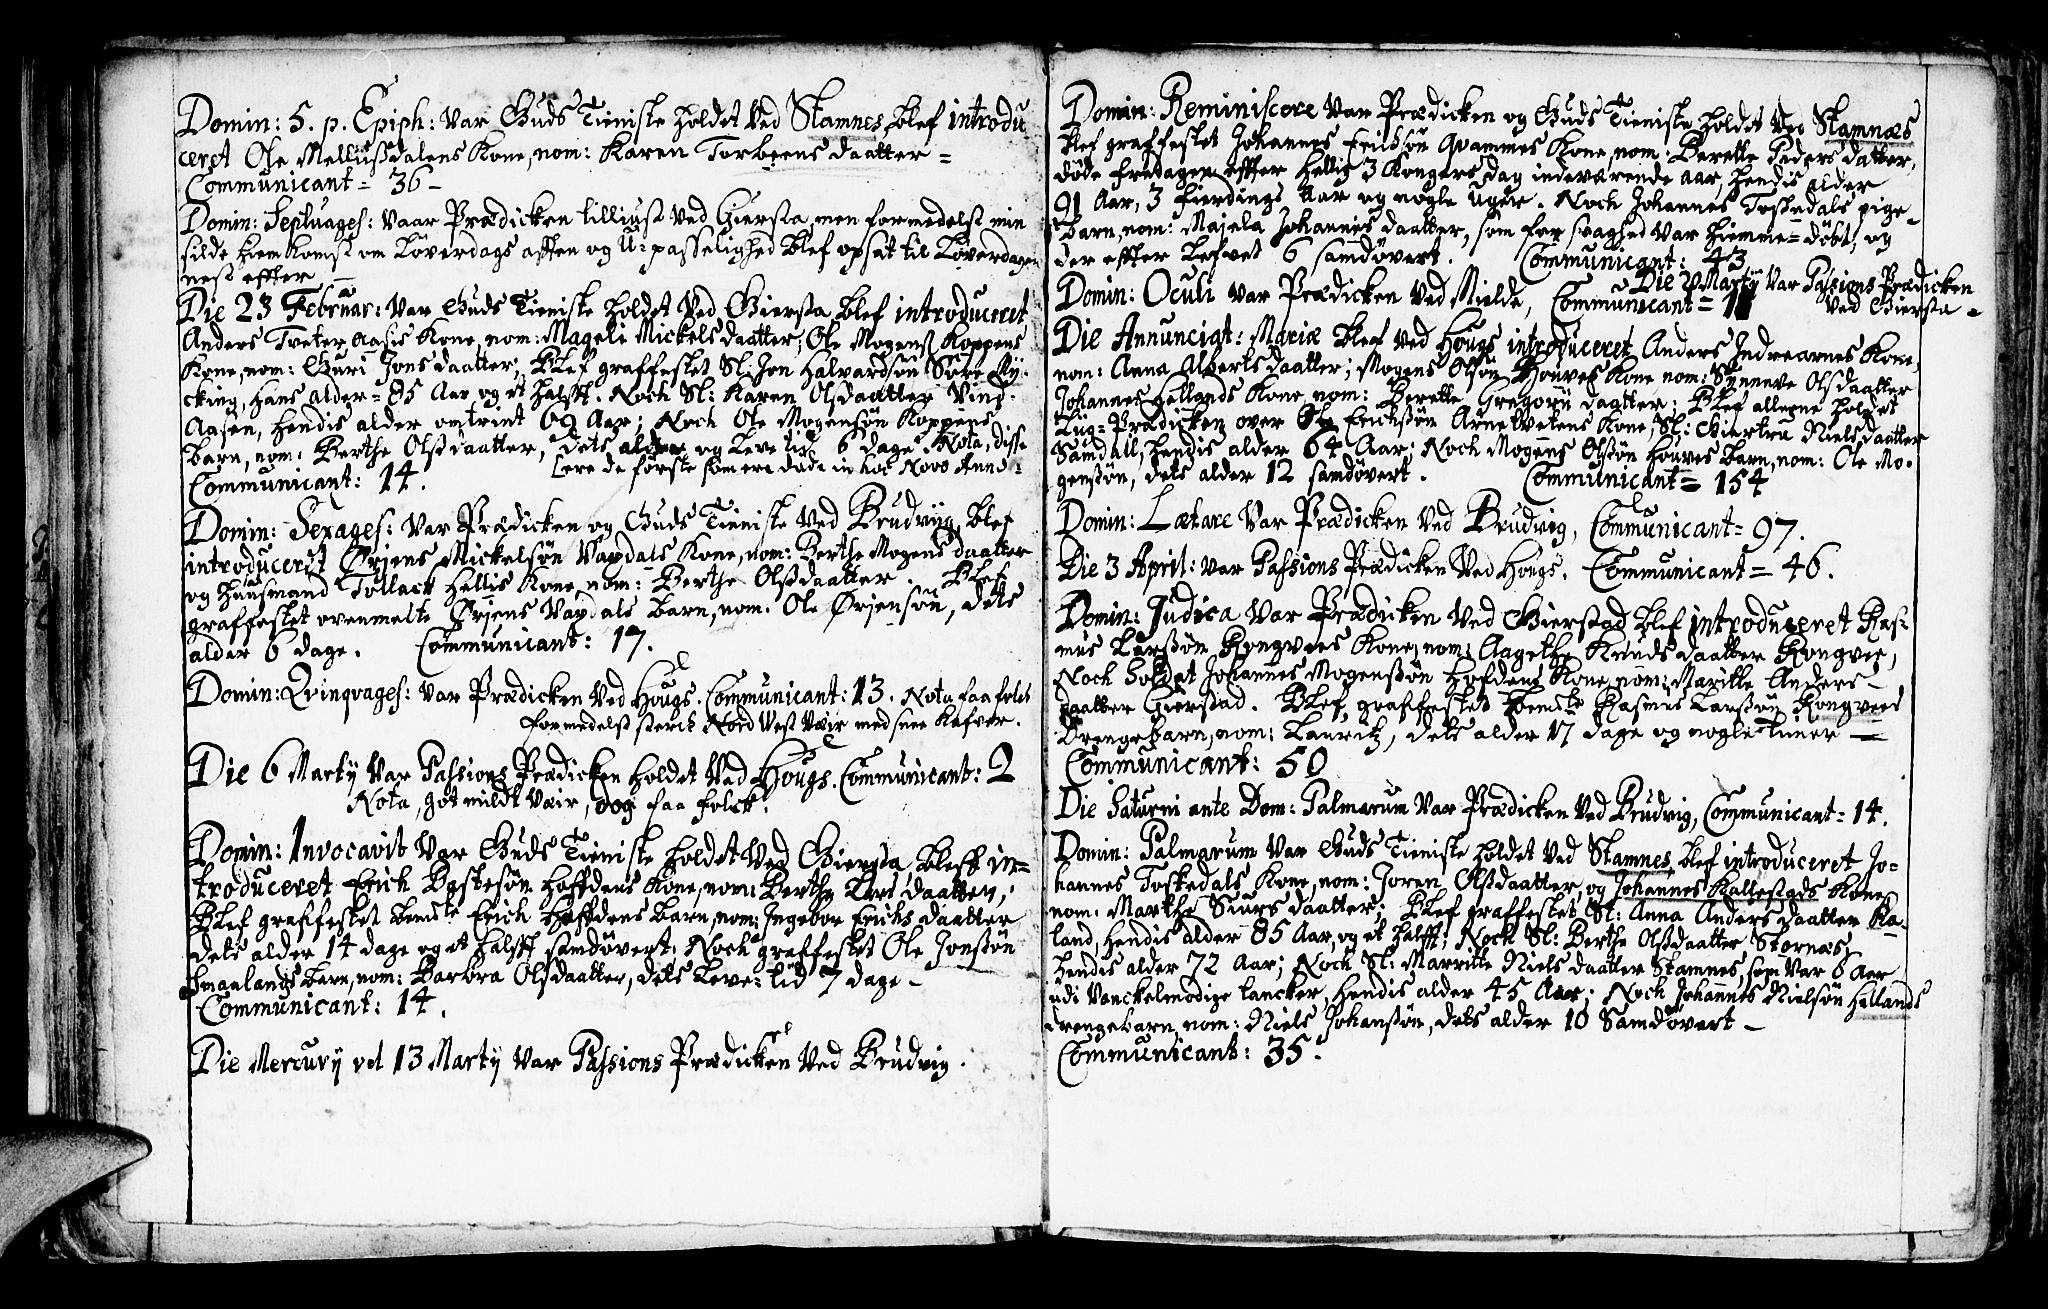 Domin: 5. p. Epiph: Var Guds Tieniste holdet Ved Stamnes, blef introdu
ceret Ole Mellusdalens Kone, nom: Karen Torbeens daatter =
Communicant = 36 -
Domin: Septuages: Vaar Prædicken tilliust Ved Giersta, men formedelst min
silde hiemkomst om Löverdags afften og U-passelighed blef opsat til Löverdagen
nest effter -
Die 23 Februar: Var Guds Tieniste holdet Ved Giersta, blef introduceret
Anders Tveter Aasis Kone, nom: Mageli Mickels daatter; Ole Mogens Koppens
Kone, nom: Guri Jons daatter; Blef graffestet Sl: Jon Halvardsön Söre Ry-
cking, hans alder = 85 Aar og et halfft. Noch Sl: Karen Olsdaatter Vind-
Aasen, hendis alder omtrint 69 Aar; Noch Ole Mogensön Koppens
barn, nom: Berthe Olsdaatter, dets alder og Leve tid 6 dage. Nota, disse
ere de förste som ere döde in hoc Novo Anno:
Communicant: 14.
Domin: Sexages: Var Prædicken og Guds Tieniste Ved Brudviig, blef
introduceret Ørjens Mickelsön Vaxdals Kone, nom: Berthe Mogens daatter
og huusmand Tollack Hellis Kone, nom: Berthe Olsdaatter. Blef
graffestet ovenmelte Ørjens Vaxdals barn, nom: Ole Ørjensön, dets
alder 6 dage. Communicant: 17.
Domin: Qvinqvages: Var Prædicken Ved Hougs. Communicant: 13. Nota faa folck
formedelst sterck Nord West Vær med snee Kafver.
Die 6 Martij Var Passions Prædicken holdet Ved Hougs. Communicant: 2
Nota, got mildt Vær, dog faa folck.
Domin: Invocavit Var Guds Tieniste holdet Ved Giersta, bleff in-
troduceret Erich Hoffdens Kone, nom: Berthe daatter;
Blef graffestet bemte Erich Hoffdens barn, nom: Ingebor Erichs daatter
dets alder 14 dage og et halfft samdövert; Noch graffestet Ole Jonssön
Smaalands barn, nom: Barbra Olsdaatter, dets Leve-tid 7 dage -
Communicant: 14.
Die Mercurij vel 13 Martij Var Passions Prædicken Ved Brudvig.
Domin: Reminiscere Var Prædicken og Guds Tieniste holdet Ved Stamnæs
blef graffestet Johannes Erichsön Qvammes Kone, nom: Berette Peders datter,
döde fredagen effter Hellig 3 Kongers dag indeværende aar, hendis alder
91 Aar, 3 fierdings Aar og nogle Uger. Noch Johannes Toskedals pige-
barn, nom: Majela Johannis daatter, som for svaghed Var hiemme-döbt, og
der effter Lefvet 6 samdövert. Communicant: 43
Die Martij Var Passions Prædicken
Domin: Oculi Var Prædicken Ved Mielde, Communicant = Ved Giersta -
Die Annunciat: Mariæ Blef Ved Hougs introduceret Anders Indrearnes Kone,
nom: Anna Alberts daatter; Mogens Olsön Houves Kone nom: Synneve Olsdaatter
Johannes Hellands Kone, nom: Berette Gregorii daatter: Blef allerne holdet
Liig-Prædicken over Ole Erichsön Arnetvetens Kone, Sl: Giertru Niels daatter
Samdall, hendis alder 64 Aar; Noch Mogens Olsön Houves barn, nom: Ole Mo-
genssön, dets alder 12 samdövert. Communicant = 154
Domin: Lætare Var Prædicken Ved Brudvig, Communicant = 97.
Die 3 April: Var Passions Prædicken Ved Hougs. Communicant = 46.
Domin: Judica Var Prædicken Ved Gierstad blef introduceret Ras-
mus Larssön Rongvees Kone, nom: Aagethe Knuds daatter Rongvee,
Noch Soldat Johannes Mogenssön Hofdens Kone, nom: Maritte Anders-
daatter Gierstad. Blef graffestet bemte Rasmus Larssön Rongvees
Drengebarn, nom: Lauritz, dets alder 17 dage og nogle timer -
Communicant: 50
Die Saturni ante Dom: Palmarum Var Prædicken Ved Brudvig, Communicant = 14.
Domin: Palmarum Var Guds Tieniste holdet Ved Stamnes, blef introduceret Jo-
hannes Toskedals Kone, nom: Joren Olsdaatter, og Johannes Kallestads Kone
nom: Marthe Siurs daatter; Blef graffestet Sl: Anna Anders daatter Ka-
land, hendis alder 85 Aar, og et halfft; Noch Sl: Berthe Olsdaatter Stornæs,
hendis alder 72 Aar; Noch Sl: Marritte Niels daatter Stamnes, som Var 6 Aar
udi Vanckelmodige tancker, hendis alder 45 Aar; Noch Johannes Nielsön Hellands
drengebarn, nom: Niels Johanssön, dets alder 10 Samdövert -
Communicant: 35.